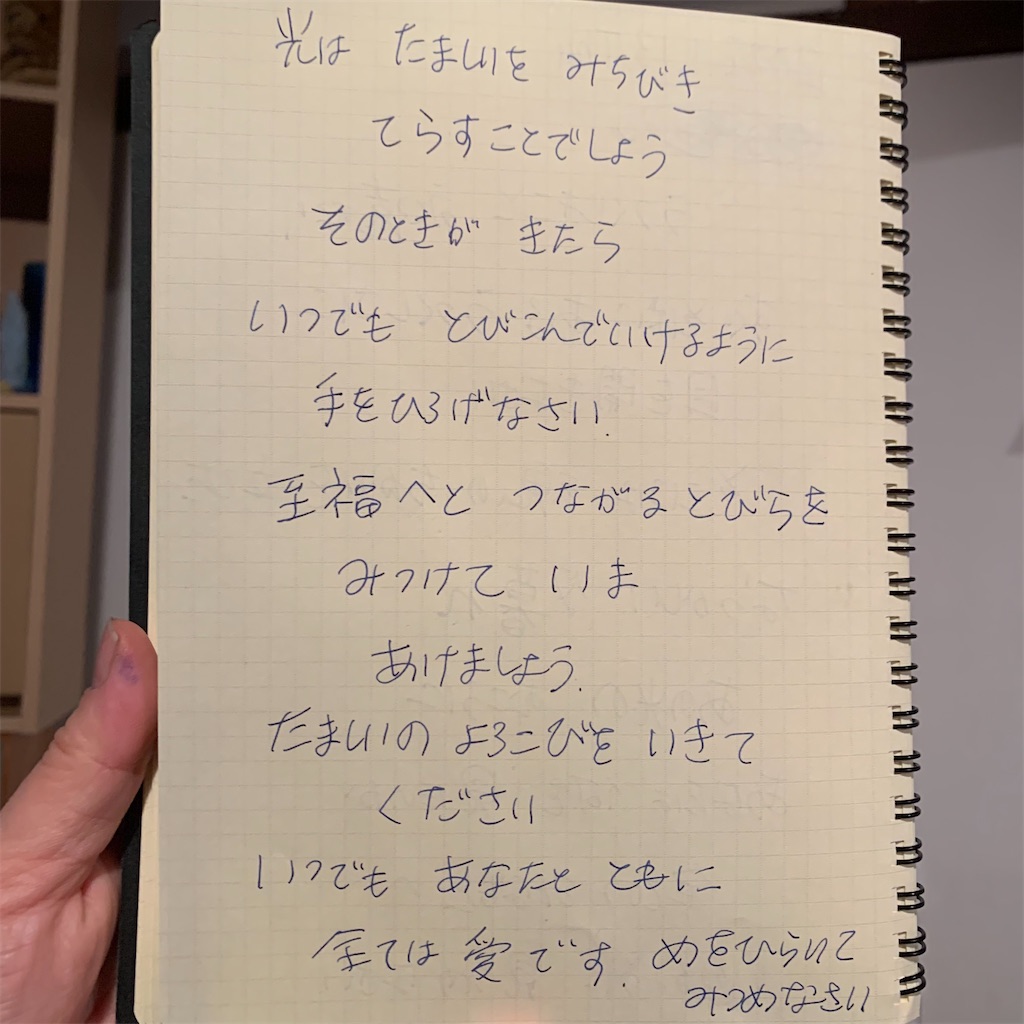 光は たましいを みちびき
てらすことでしょう
そのときが きたら
いつでも とびこんでいけるように
手をひろげなさい.
至福へと つながるとびらを
みつけて いま
あけましょう.
たましいの よろこびを いきて
ください
いつでも あなたと ともに
全ては 愛です. めをひらいて
みつめなさい